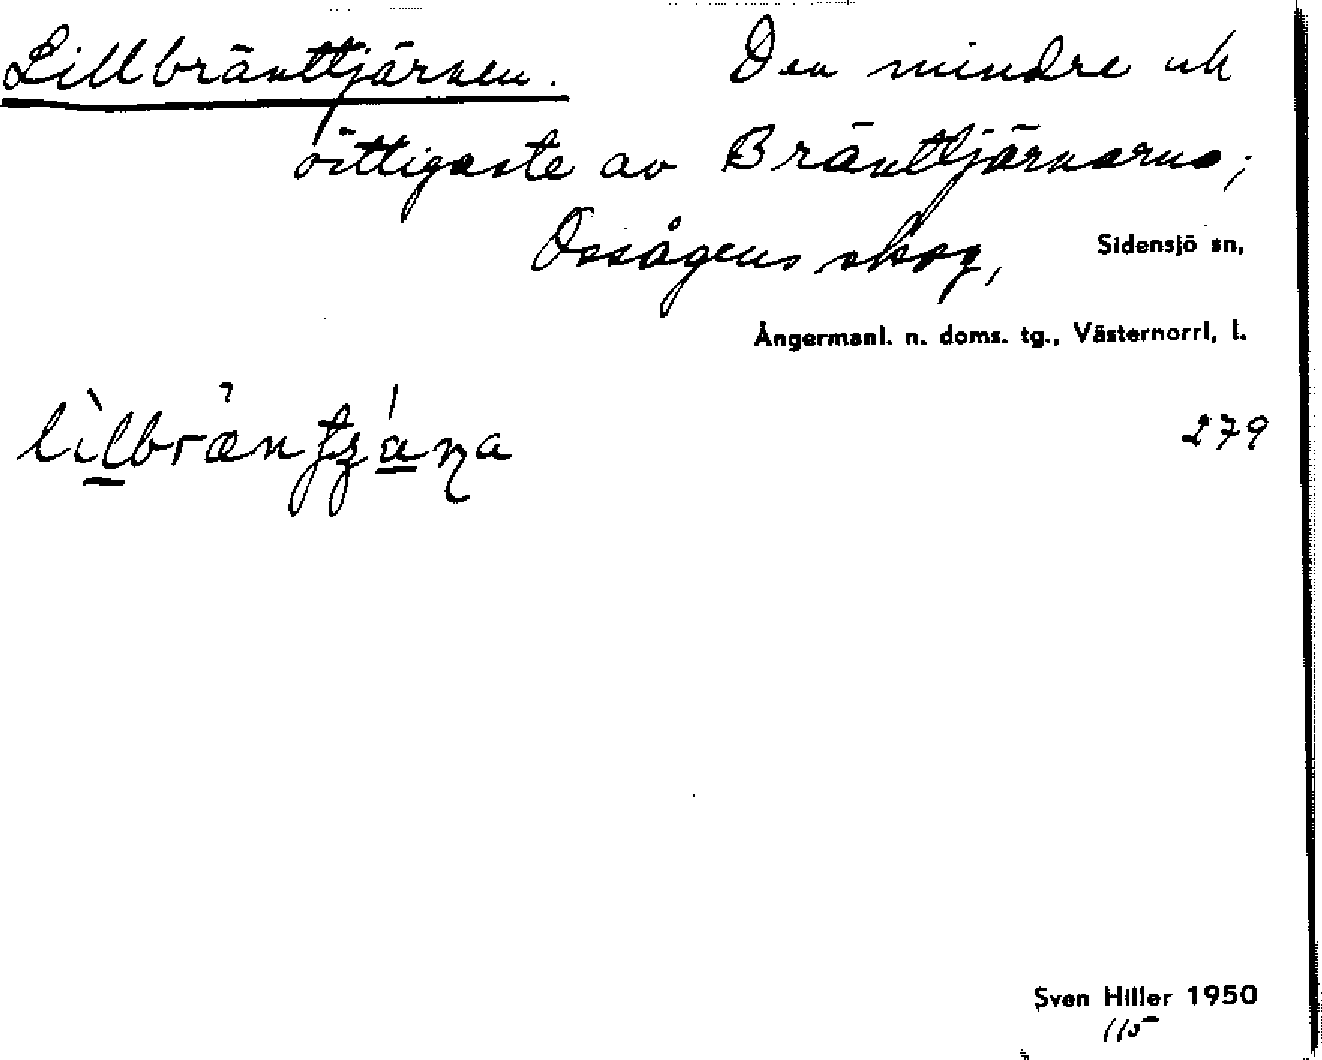 Lillbränttjärnen. Den mindre ok
östligaste av Bränttjärnarna;
Ossågens skog, Sidensjö sn,
Ångermanl. n. doms. tg., Västernorrl. l.
279
Sven Hiller 1950